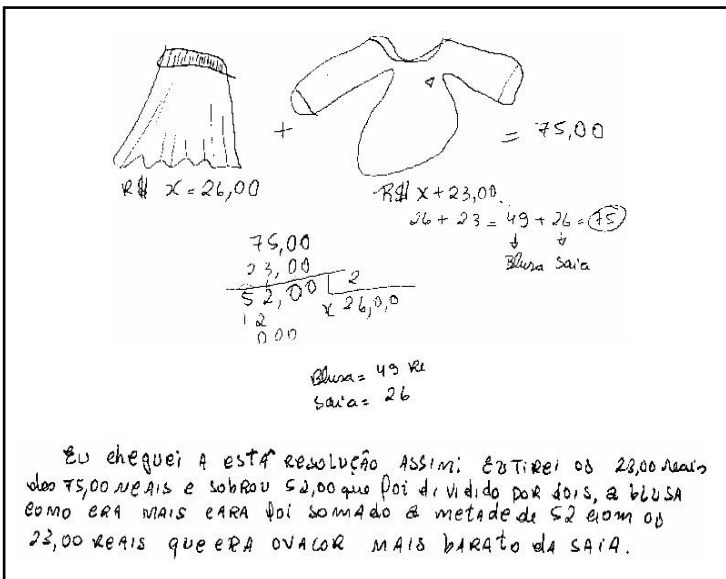 = 75,00
+
R$ x = 26,00
R$ x + 23,00.
26 + 23 = 49 + 26 = 75
Blusa Saia
75,00
23,00
52,00 2
12 x 26,0,0
000
Blusa = 49 Re
Saia = 26
Eu cheguei A estÁ RESOLUÇÃO ASSIM: EU TIREI OS 23,00 reais
dos 75,00 REAIS e SOBROU 52,00 que foi dividido POR dois, a bLUSA
COMO ERA MAIS CARA foi SOMADO a metade de 52 com os
23,00 REAIS que ERA O VALOR MAIS bARATO dA SAIA.